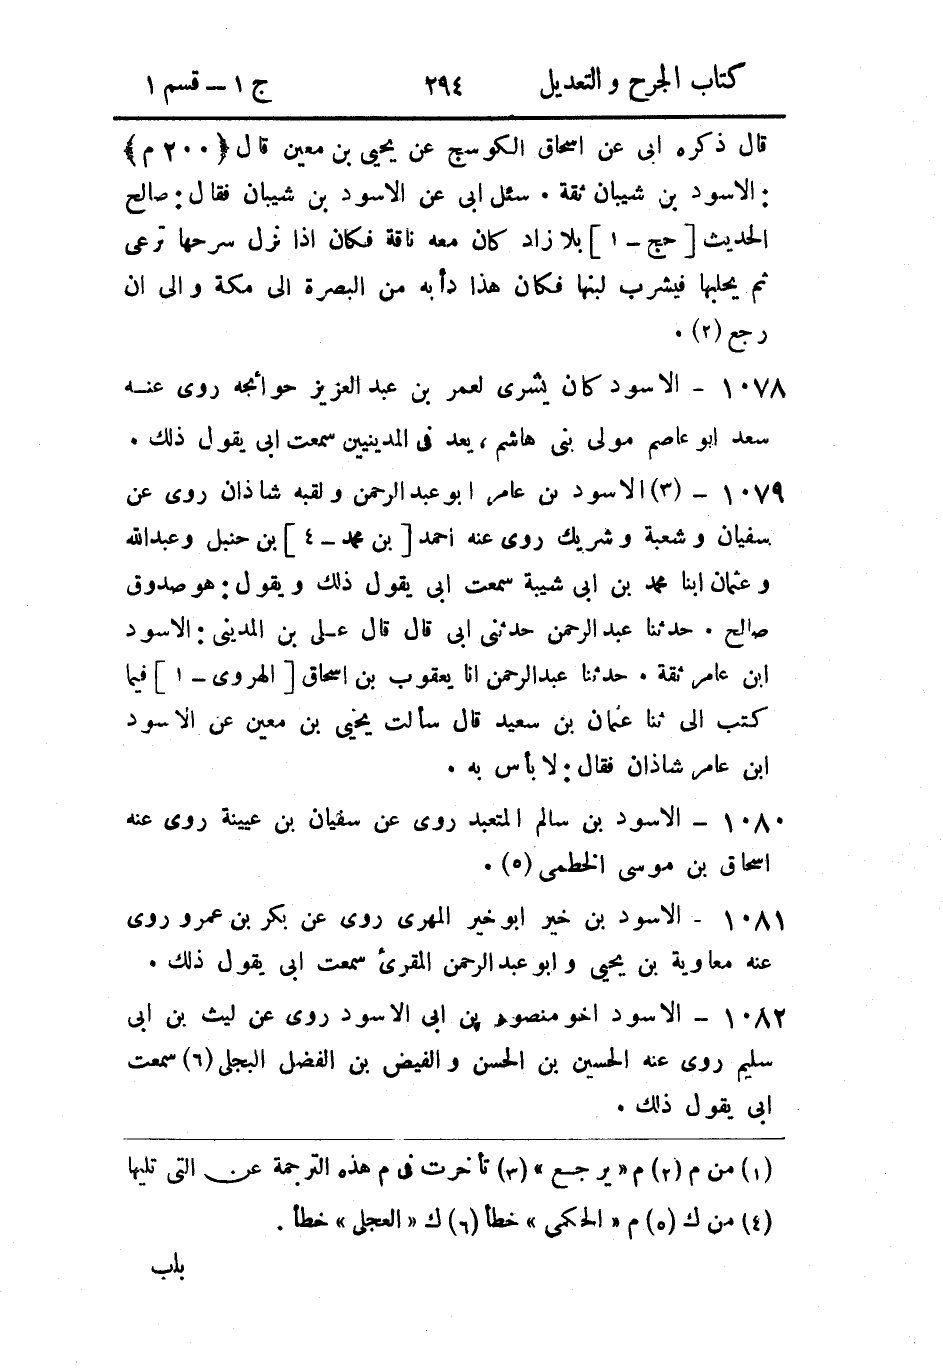 كتاب الجرح و التعديل ٢٩٤ ج ١ – قسم ١
قال ذكره ابى عن اسحاق الكوسج عن يحيى بن معين قال ﴿٢٠٠ م﴾
: الاسود بن شيبان ثقة . سئل ابى عن الاسود بن شيبان فقال : صالح
الحديث [ حج – ١ ] بلا زاد كان معه ناقة فكان اذا نزل سرحها ترعى
ثم يحلبها فيشرب لبنها فكان هذا دأبه من البصرة الى مكة و الى ان
رجع (٢) .
١٠٧٨ – الاسود كان يشرى لعمر بن عبد العزيز حوائجه روى عنه
سعد ابو عاصم مولى بنى هاشم ، يعد فى المدينيين سمعت ابى يقول ذلك .
١٠٧٩ – (٣) الاسود بن عامر ابو عبد الرحمن و لقبه شاذان روى عن
سفيان و شعبة و شريك روى عنه احمد [ بن محمد – ٤ ] بن حنبل و عبدالله
و عثمان ابنا محمد بن ابى شيبة سمعت ابى يقول ذلك و يقول : هو صدوق
صالح . حدثنا عبد الرحمن حدثنى ابى قال قال على بن المدينى : الاسود
ابن عامر ثقة . حدثنا عبدالرحمن انا يعقوب بن اسحاق [ الهروى – ١ ] فيما
كتب الى ثنا عثمان بن سعيد قال سألت يحيى بن معين عن الاسود
ابن عامر شاذان فقال : لا بأس به .
١٠٨٠ – الاسود بن سالم المتعبد روى عن سفيان بن عيينة روى عنه
اسحاق بن موسى الخطمى (٥) .
١٠٨١ – الاسود بن خير ابو خير المهرى روى عن بكر بن عمرو روى
عنه معاوية بن يحيى و ابو عبد الرحمن المقرئ سمعت ابى يقول ذلك .
١٠٨٢ – الاسود اخو منصور بن ابى الاسود روى عن ليث بن ابى
سليم روى عنه الحسين بن الحسن و الفيض بن الفضل البجلى (٦) سمعت
ابى يقول ذلك .
(١) من م (٢) م « يرجع » (٣) تأخرت فى م هذه الترجمة عن التى تليها
(٤) من ك (٥) م « الحكمى » خطأ (٦) ك « العجلى » خطأ .
باب